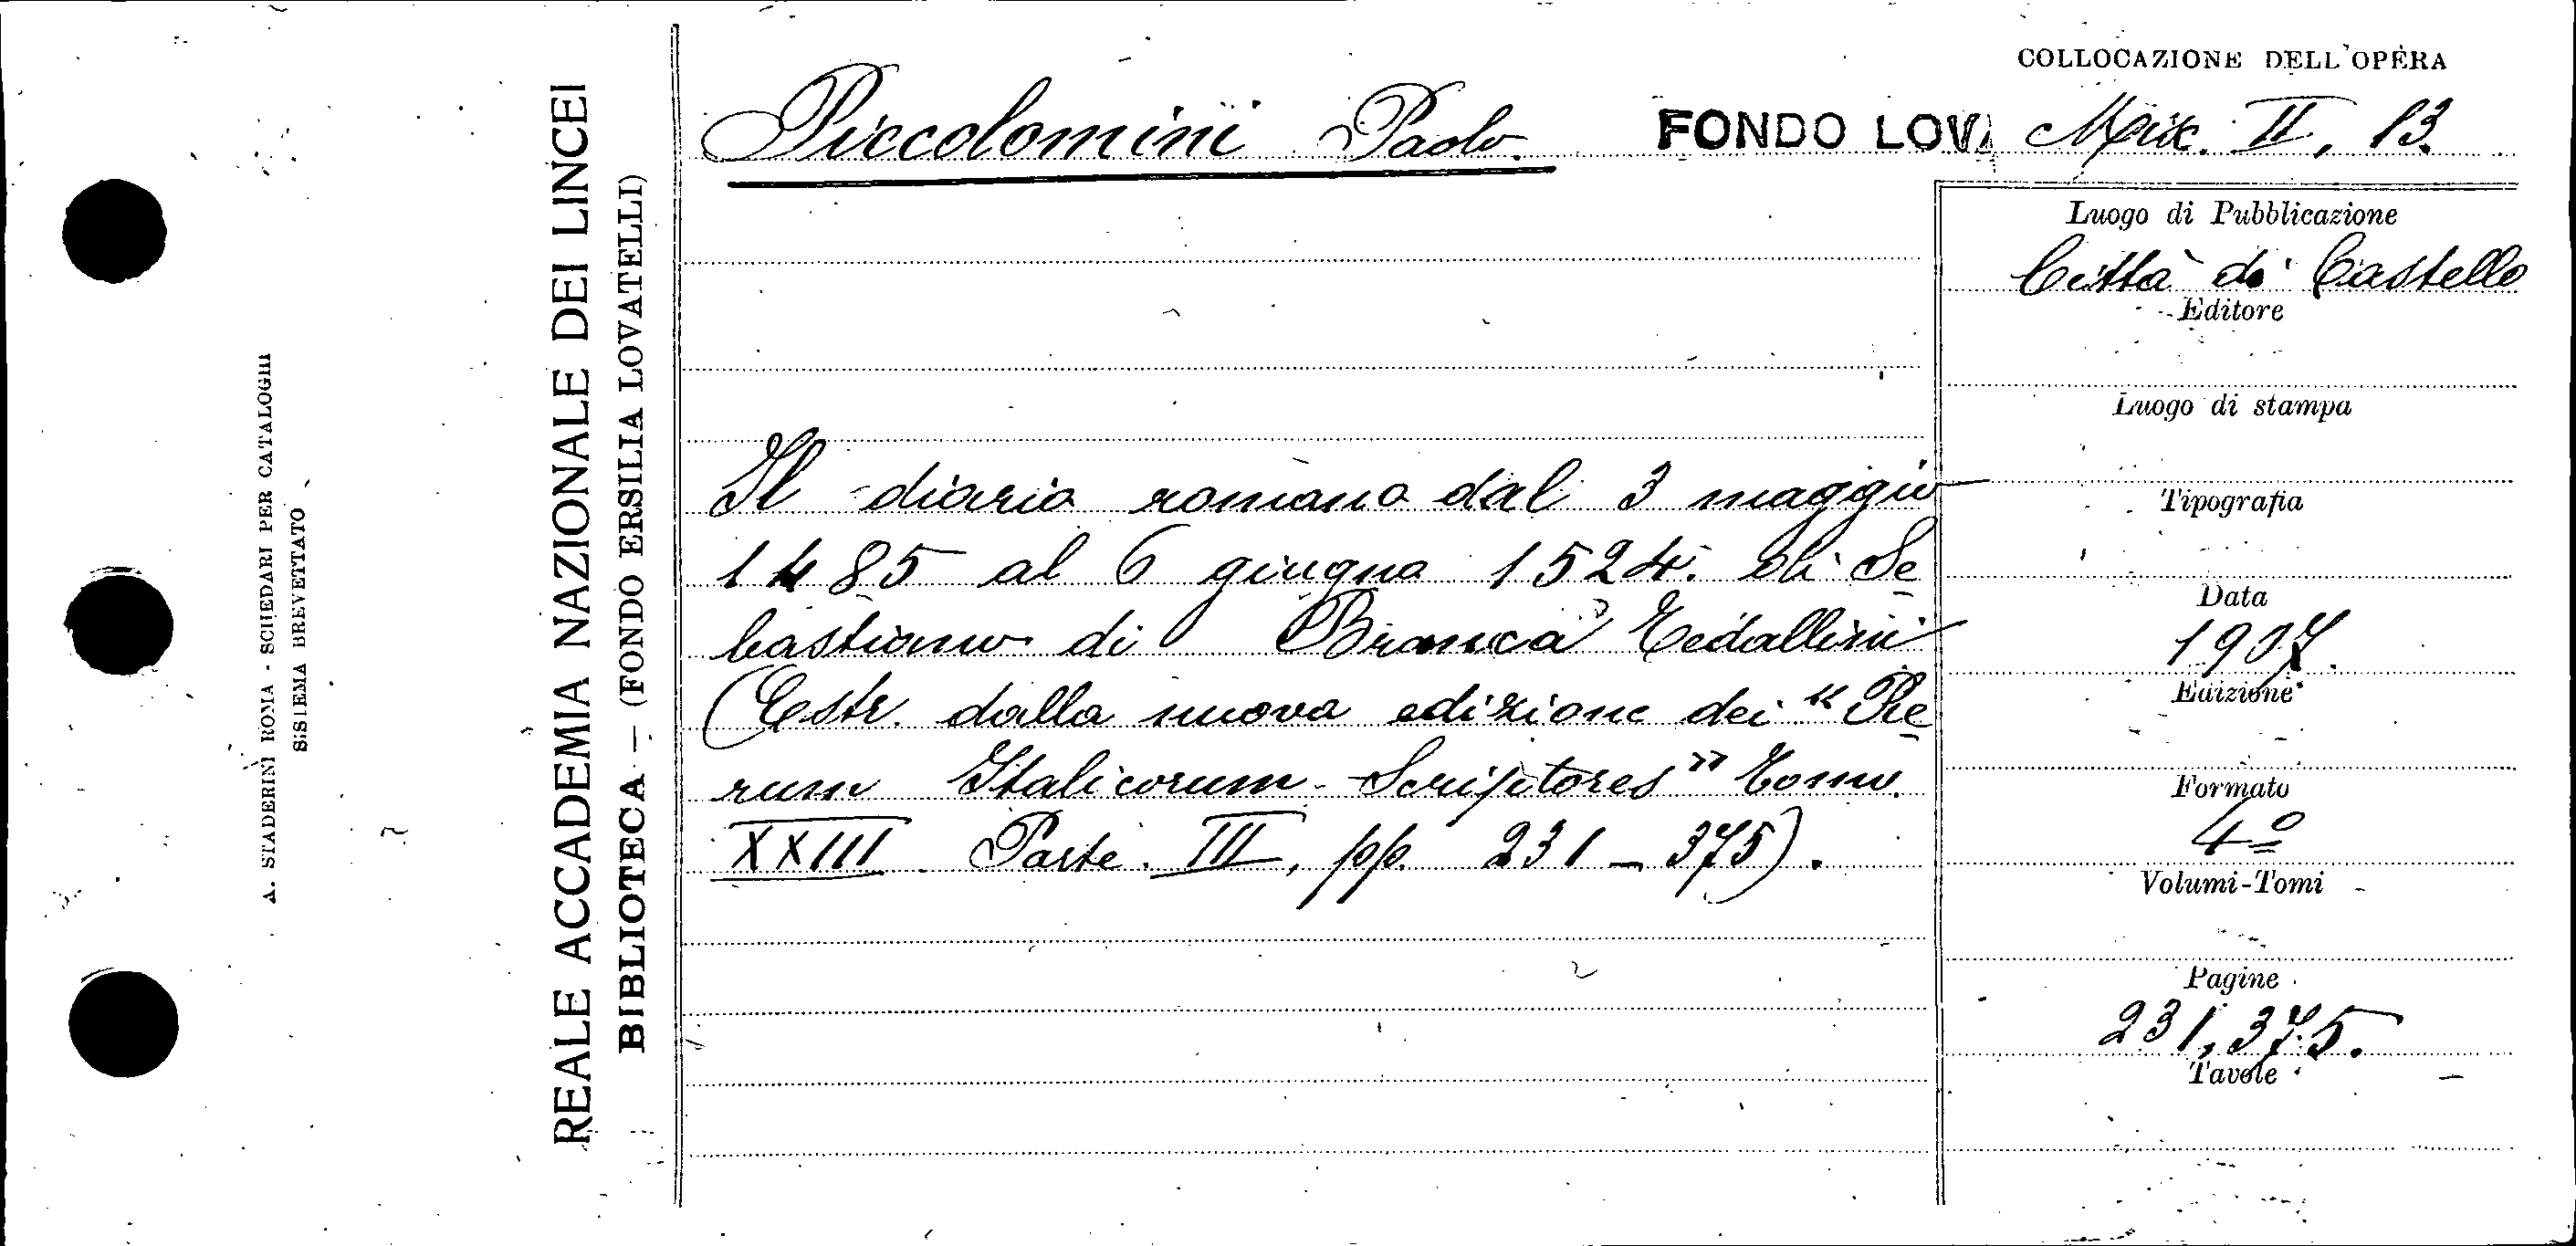 A. STADERINI ROMA - SCHEDARI PER CATALOGHI
SISTEMA BREVETTATO
REALE ACCADEMIA NAZIONALE DEI LINCEI
BIBLIOTECA — (FONDO ERSILIA LOVATELLI)
Piccolomini Paolo.
FONDO LOVA
COLLOCAZIONE DELL'OPERA
Mix. II, 13.
Il diario romano dal 3 maggio
1485 al 6 giugno 1524. di Se
bastiano di Branca Tedallini
(Estr. dalla nuova edizione dei "Re
rum Italicorum Scriptores" Tomo
XXIII Parte III, pp. 231-375).
Luogo di Pubblicazione
Città di Castello
Editore
Luogo di stampa
Tipografia
Data
1907.
Edizione
Formato
4º
Volumi-Tomi
Pagine
231,375.
Tavole